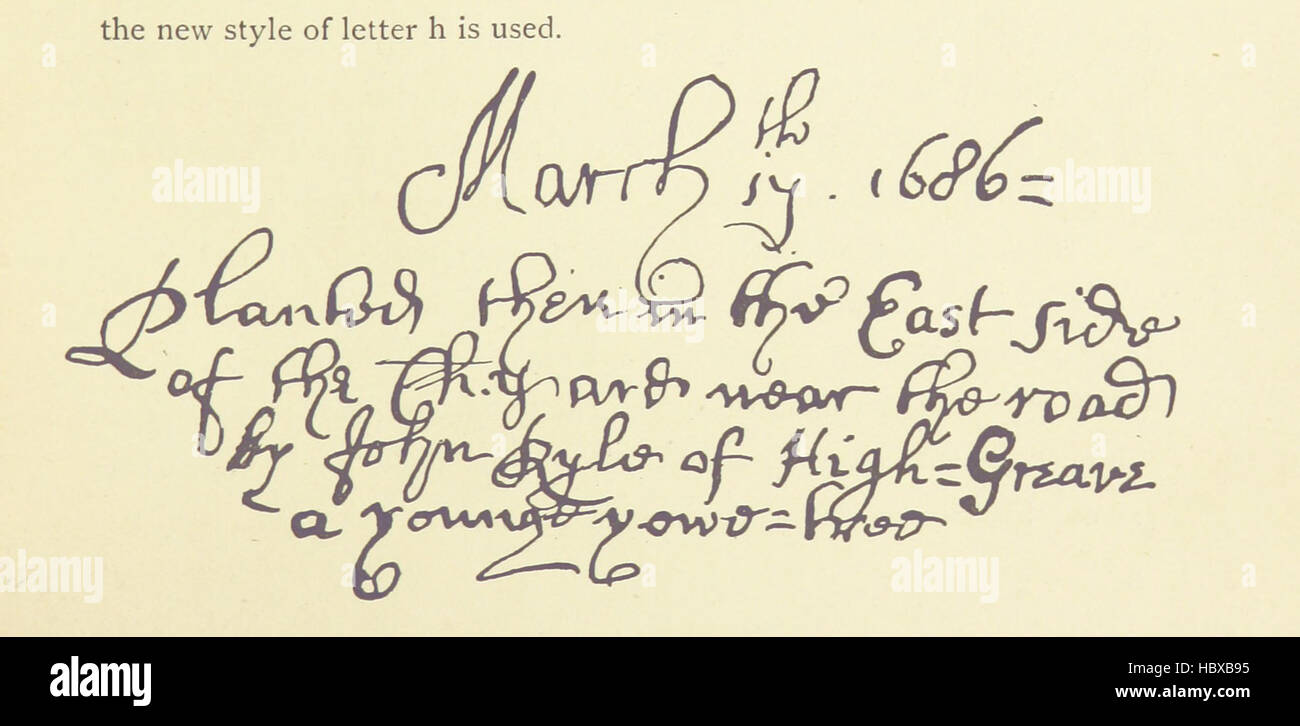 the new style of letter h is used.
March 17th. 1686=
Planted then in the East side
of the Ch.yard near the road
by John Ryle of High=Greave
a younge yowe=tree
alamy
Image ID: HBXB95
www.alamy.com